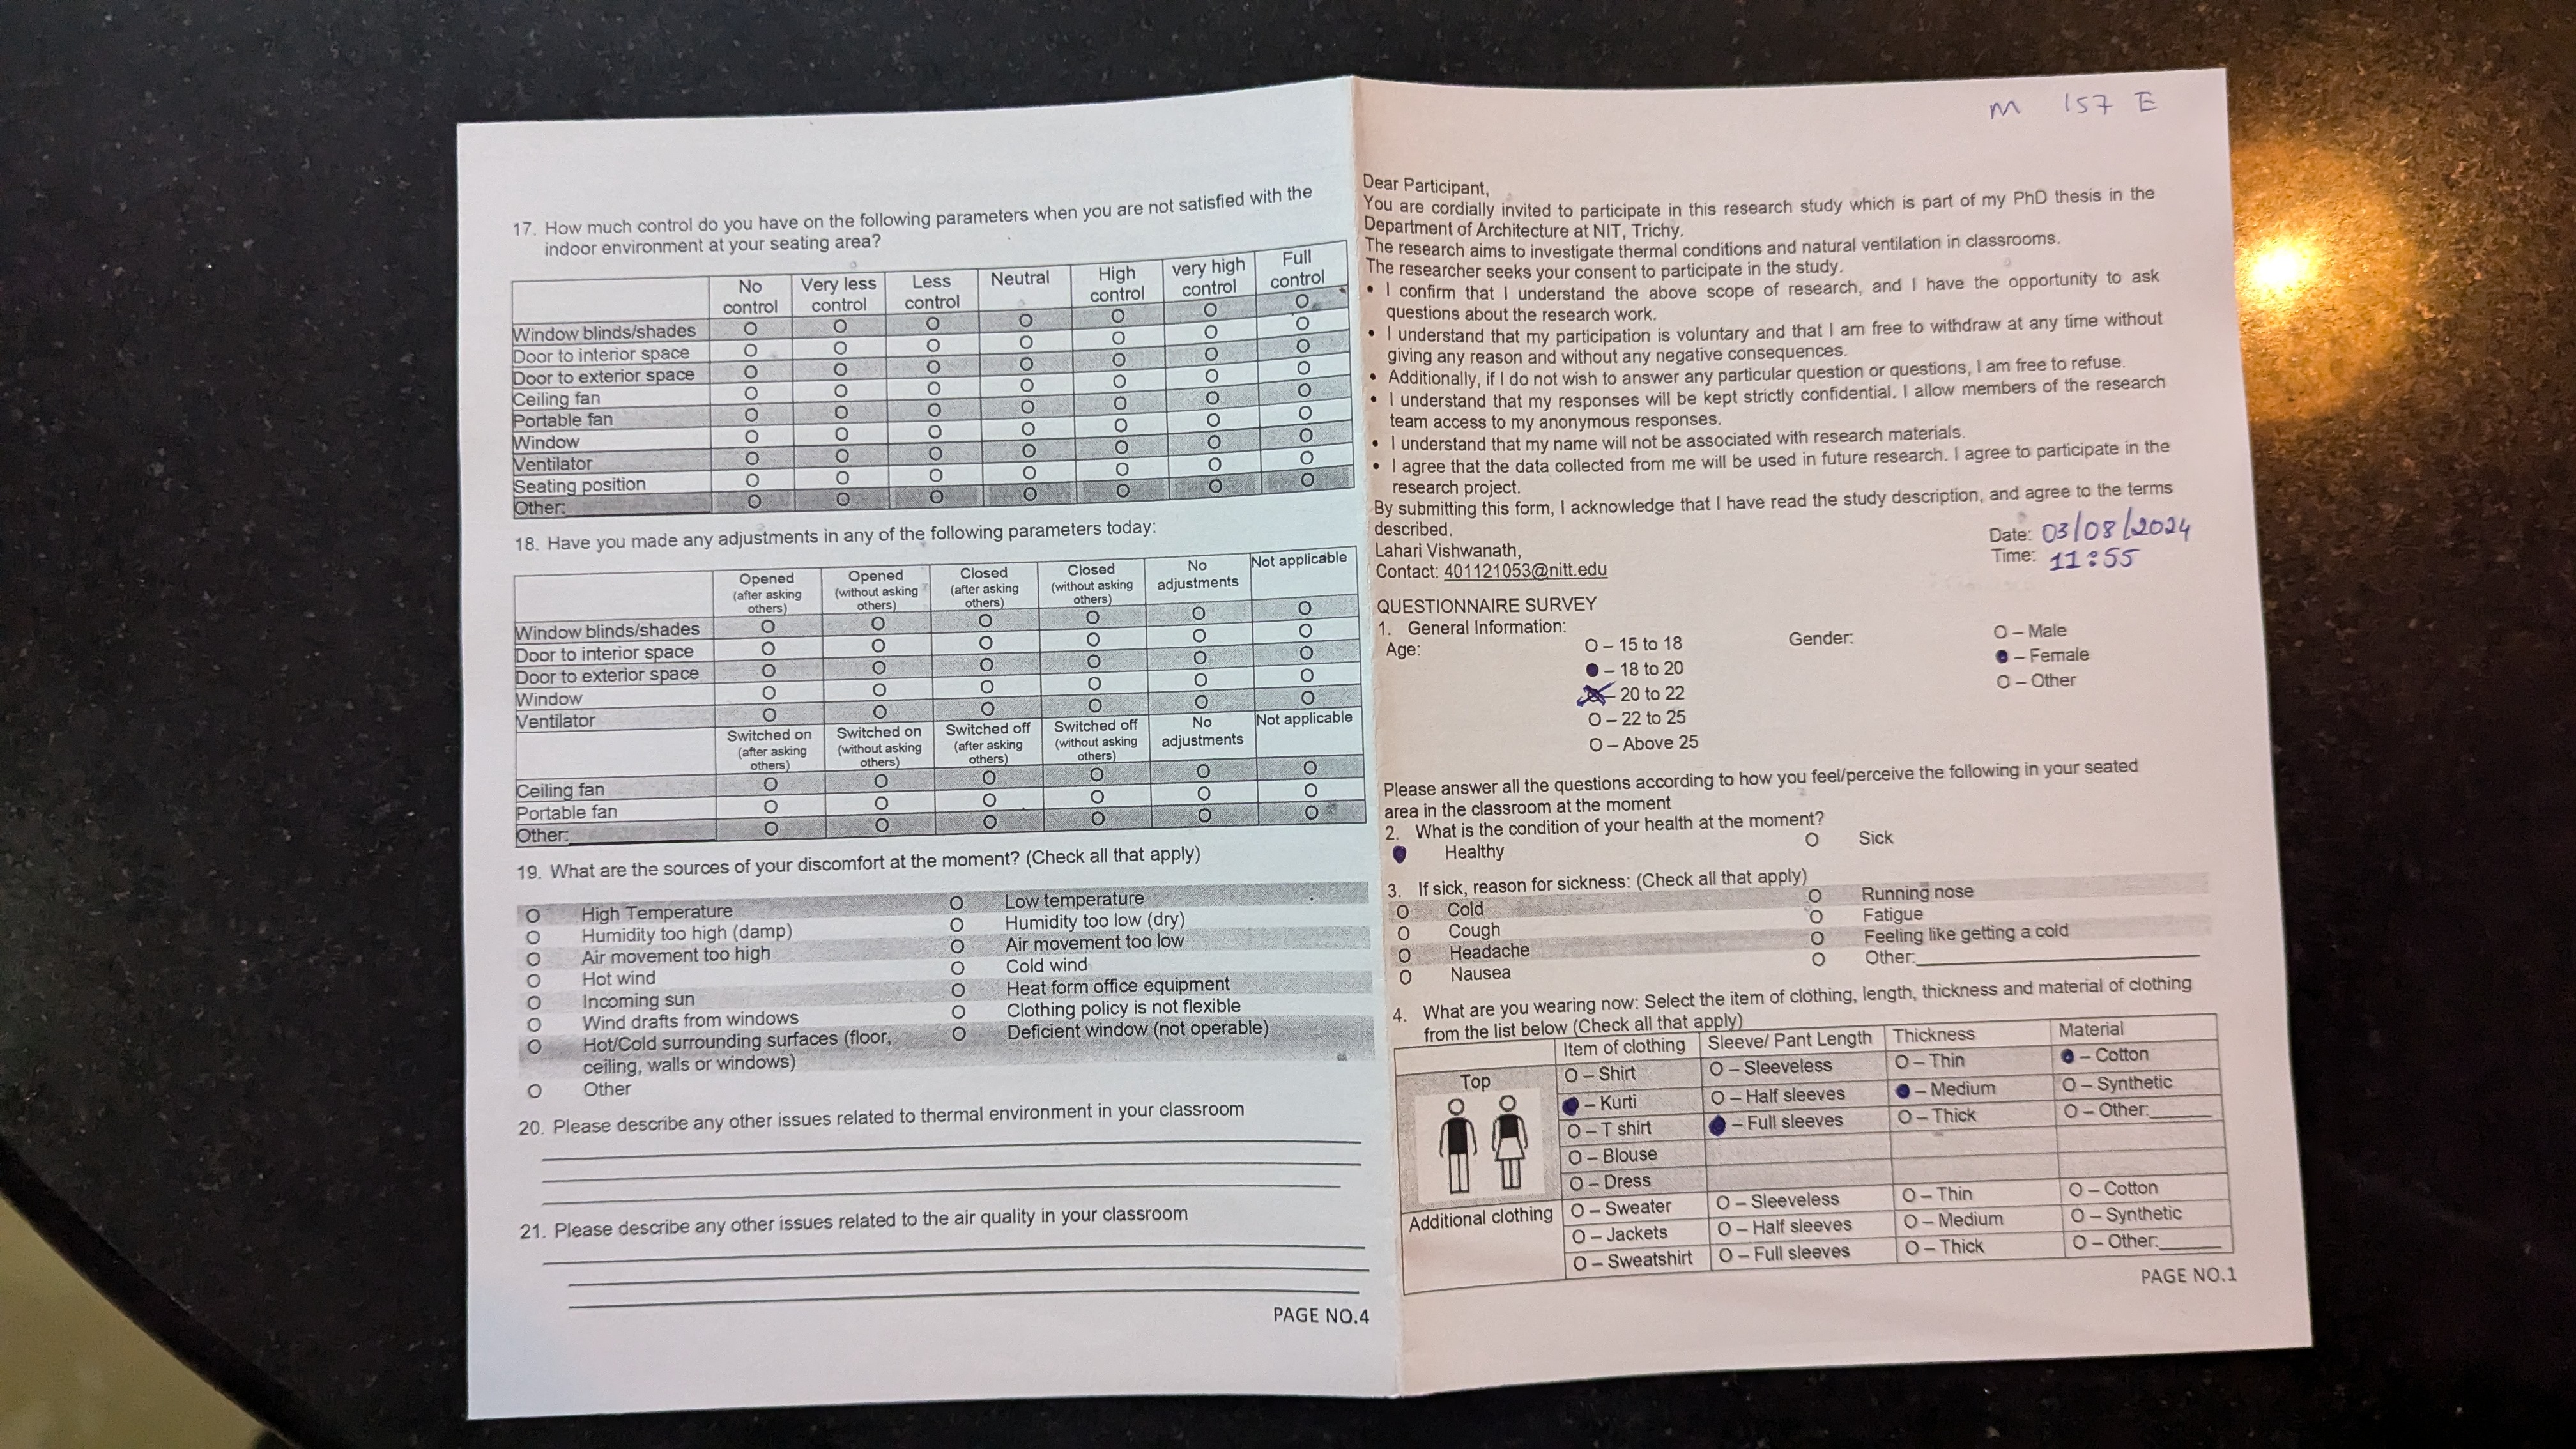 17. How much control do you have on the following parameters when you are not satisfied with the
indoor environment at your seating area?
No control Very less control Less control Neutral High control very high control Full control
Window blinds/shades O O O O O O O
Door to interior space O O O O O O O
Door to exterior space O O O O O O O
Ceiling fan O O O O O O O
Portable fan O O O O O O O
Window O O O O O O O
Ventilator O O O O O O O
Seating position O O O O O O O
Other:________ O O O O O O O
18. Have you made any adjustments in any of the following parameters today:
Opened (after asking others) Opened (without asking others) Closed (after asking others) Closed (without asking others) No adjustments Not applicable
Window blinds/shades O O O O O O
Door to interior space O O O O O O
Door to exterior space O O O O O O
Window O O O O O O
Ventilator O O O O O O
Switched on (after asking others) Switched on (without asking others) Switched off (after asking others) Switched off (without asking others) No adjustments Not applicable
Ceiling fan O O O O O O
Portable fan O O O O O O
Other:________ O O O O O O
19. What are the sources of your discomfort at the moment? (Check all that apply)
O High Temperature O Low temperature
O Humidity too high (damp) O Humidity too low (dry)
O Air movement too high O Air movement too low
O Hot wind O Cold wind
O Incoming sun O Heat form office equipment
O Wind drafts from windows O Clothing policy is not flexible
O Hot/Cold surrounding surfaces (floor, O Deficient window (not operable)
ceiling, walls or windows)
O Other
20. Please describe any other issues related to thermal environment in your classroom
21. Please describe any other issues related to the air quality in your classroom
PAGE NO.4
M 157 E
Dear Participant,
You are cordially invited to participate in this research study which is part of my PhD thesis in the
Department of Architecture at NIT, Trichy.
The research aims to investigate thermal conditions and natural ventilation in classrooms.
The researcher seeks your consent to participate in the study.
• I confirm that I understand the above scope of research, and I have the opportunity to ask
questions about the research work.
• I understand that my participation is voluntary and that I am free to withdraw at any time without
giving any reason and without any negative consequences.
• Additionally, if I do not wish to answer any particular question or questions, I am free to refuse.
• I understand that my responses will be kept strictly confidential. I allow members of the research
team access to my anonymous responses.
• I understand that my name will not be associated with research materials.
• I agree that the data collected from me will be used in future research. I agree to participate in the
research project.
By submitting this form, I acknowledge that I have read the study description, and agree to the terms
described.
Lahari Vishwanath,
Contact: 401121053@nitt.edu
Date: 03/08/2024
Time: 11:55
QUESTIONNAIRE SURVEY
1. General Information:
Age: O – 15 to 18 Gender: O – Male
● – 18 to 20 ● – Female
– 20 to 22 O – Other
O – 22 to 25
O – Above 25
Please answer all the questions according to how you feel/perceive the following in your seated
area in the classroom at the moment
2. What is the condition of your health at the moment?
● Healthy O Sick
3. If sick, reason for sickness: (Check all that apply)
O Cold O Running nose
O Cough O Fatigue
O Headache O Feeling like getting a cold
O Nausea O Other:________
4. What are you wearing now: Select the item of clothing, length, thickness and material of clothing
from the list below (Check all that apply)
Item of clothing Sleeve/ Pant Length Thickness Material
Top O – Shirt O – Sleeveless O – Thin ● – Cotton
● – Kurti O – Half sleeves ● – Medium O – Synthetic
O – T shirt ● – Full sleeves O – Thick O – Other:______
O – Blouse
O – Dress
Additional clothing O – Sweater O – Sleeveless O – Thin O – Cotton
O – Jackets O – Half sleeves O – Medium O – Synthetic
O – Sweatshirt O – Full sleeves O – Thick O – Other:______
PAGE NO.1